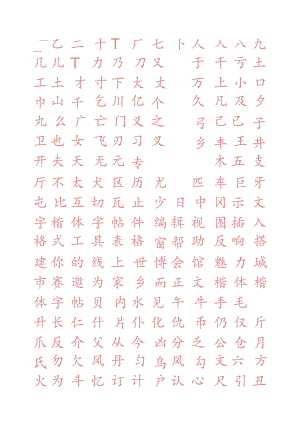 一 乙 二 十 丁 厂 七 卜 人 入 八 九
几 儿 丁 力 乃 刀 又 了 干 亏 土
工 土 才 寸 下 大 丈 于 上 小 口
巾 山 才 千 川 亿 个 万 凡 及 夕
丸 么 广 亡 门 义 之 久 弓 己 已 子
卫 也 女 飞 刃 习 叉 乡 丰 王 井
开 夫 天 无 元 专 木 五 支
厅 不 太 犬 区 历 尤 匹 车 巨 牙
屯 比 互 切 瓦 止 少 日 中 冈 示 文
字 楷 体 字 帖 件 编 辑 视 图 影 入
格 式 工 具 表 格 窗 帮 助 反 响 搭
建 你 的 线 上 世 博 会 馆 魅 力 城
市 赛 邀 为 家 乡 而 正 文 楷 体 楷
体 字 帖 贝 内 水 见 午 牛 手 毛
升 长 仁 什 片 仆 化 仇 币 仍 仅 斤
爪 反 介 父 从 今 凶 分 乏 公 仓 月
氏 勿 欠 风 丹 匀 乌 凤 勾 文 六 方
火 为 斗 忆 订 计 户 认 心 尺 引 丑